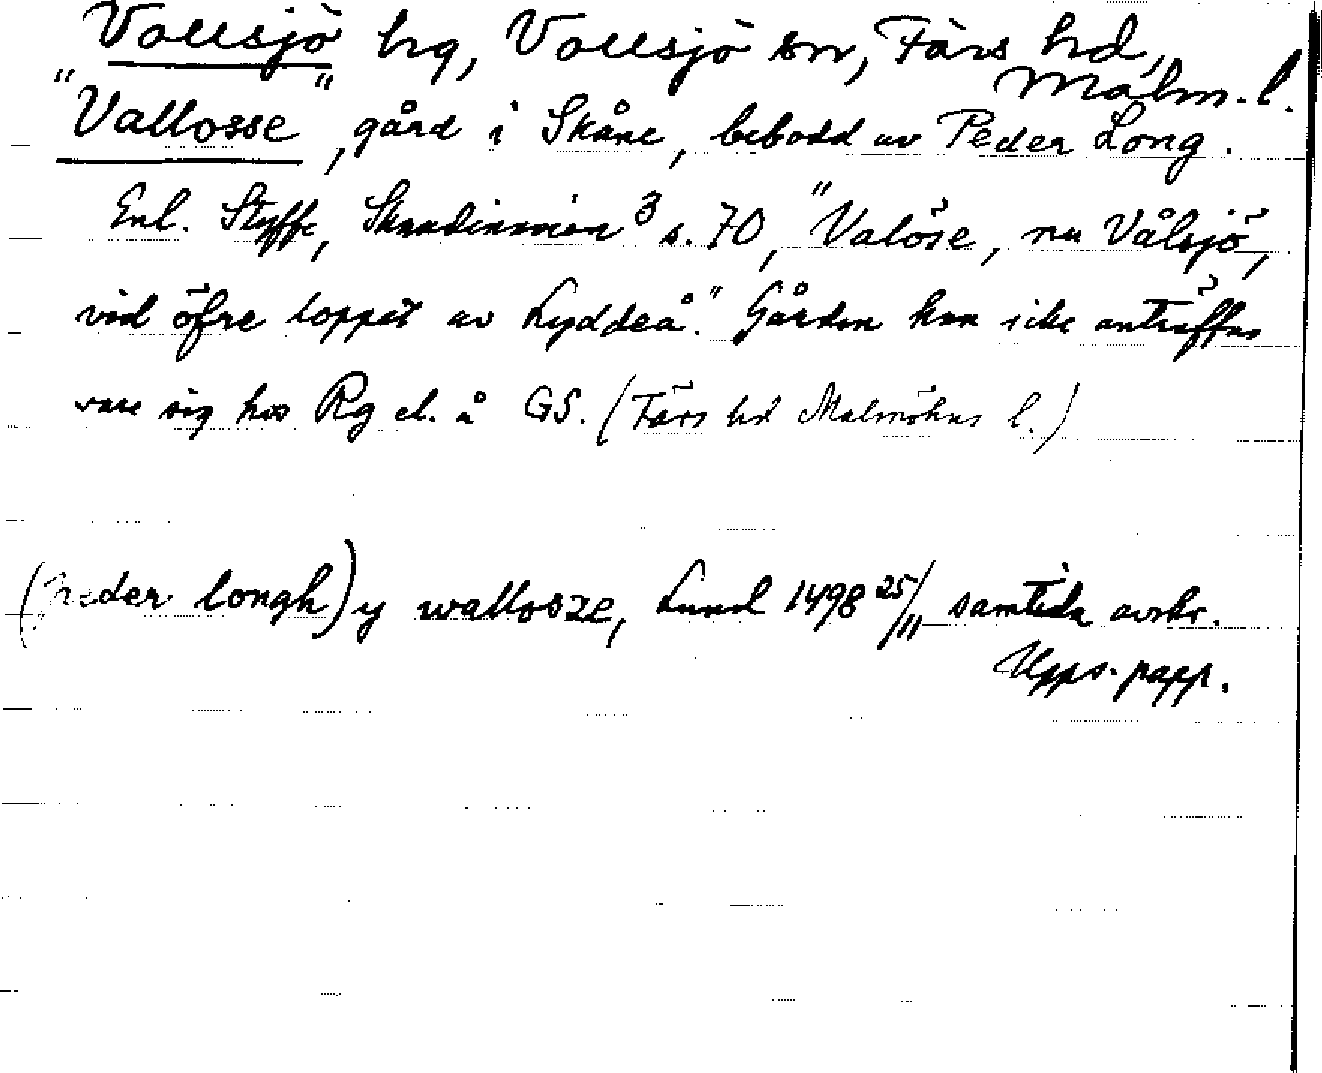 Vollsjö hg, Vollsjö sn, Färs hd, Malm. l.
"Vallosse", gård i Skåne, bebodd av Peder Long.
Enl. Styffe, Skandinavien³ s. 70, "Valöse, nu Vålsjö,
vid öfre loppet av Lyddeå." Gården kan icke anträffas
vare sig hos Rg el. å GS. (Färs hd Malmöhus l.)
(peder longh) y wallosze, Lund 1498 25/11 samtida avskr.
Upps. papp.